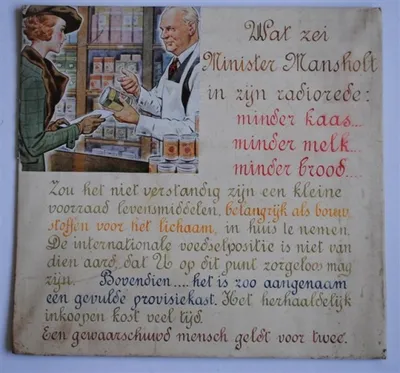 Wat zei
Minister Mansholt
in zijn radiorede:
minder kaas...
minder melk...
minder brood....
Zou het niet verstandig zijn een kleine
voorraad levensmiddelen, belangrijk als bouw-
stoffen voor het lichaam, in huis te nemen.
De internationale voedselpositie is niet van
dien aard, dat U op dit punt zorgeloos mag
zijn. Bovendien.... het is zoo aangenaam
een gevulde provisiekast. Het herhaaldelijk
inkoopen kost veel tijd.
Een gewaarschuwd mensch geldt voor twee.